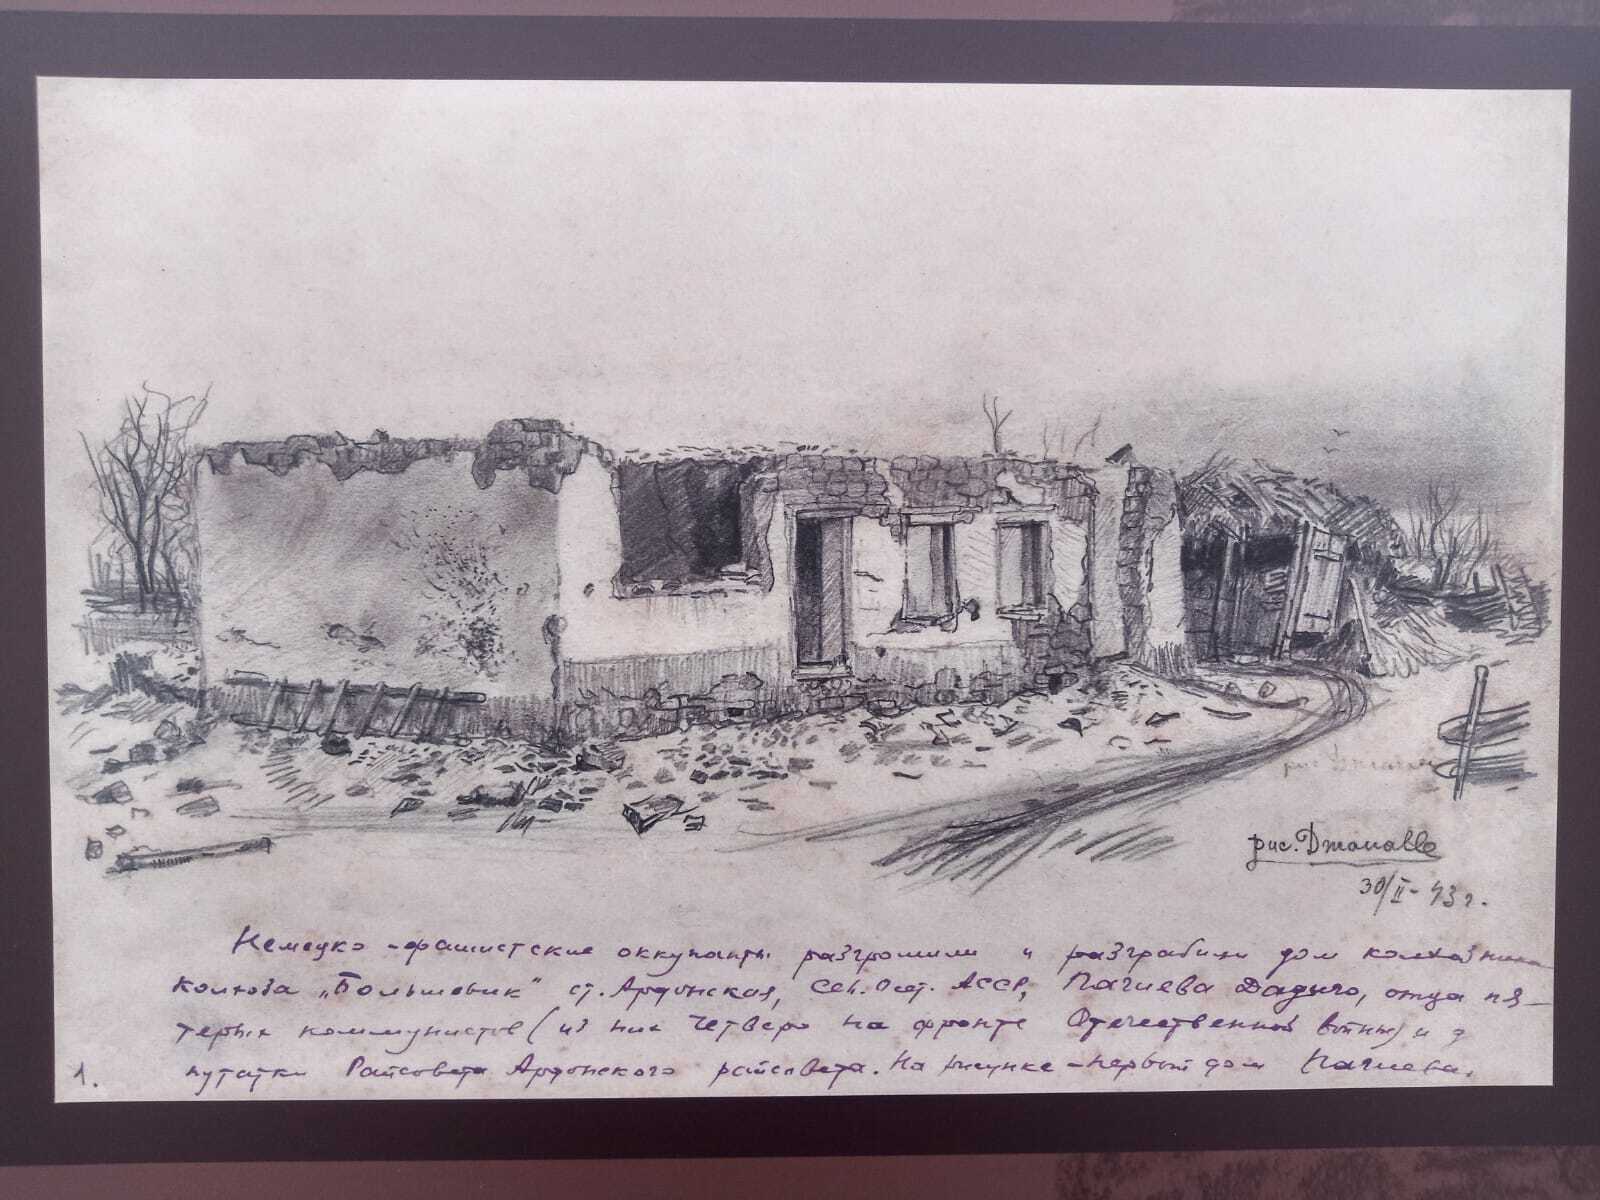 рис. Джанаев
рис. Джанаев
30/II - 43 г.
Немецко-фашистские оккупанты разгромили и разграбили дом колхозника
колхоза „Большевик" ст. Ардонская, Сев. Осет. АССР, Пагиева Дадыго, отца пя-
терых коммунистов (из них четверо на фронте Отечественной войны) и д
путатки Райсовета Ардонского райсовета. На рисунке - первый дом Пагиева.
1.